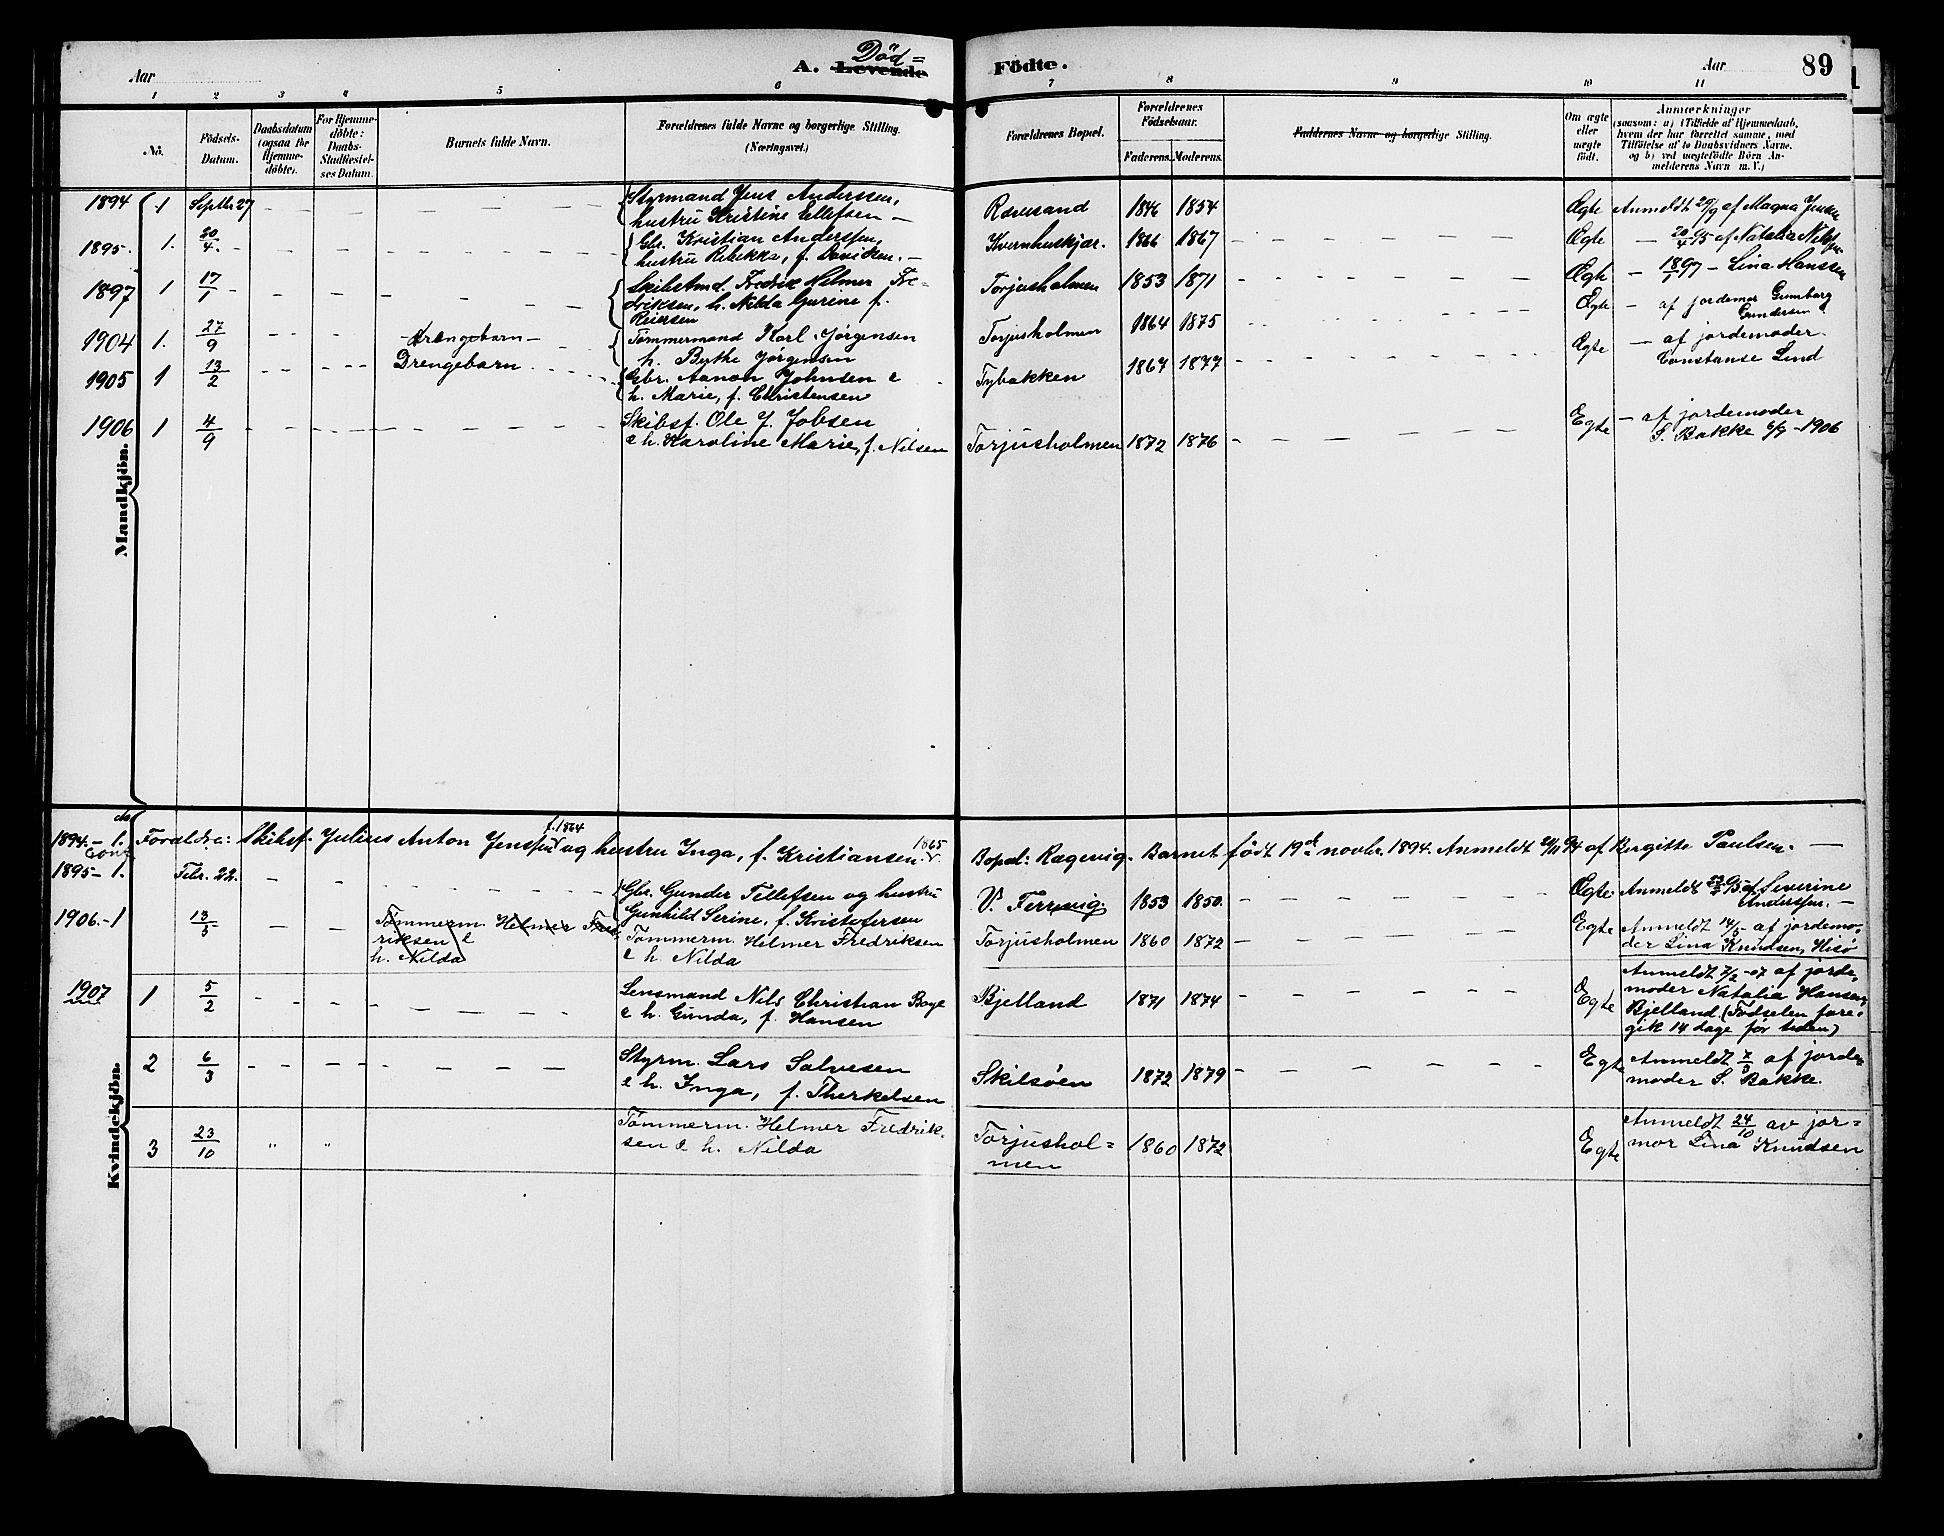 Aar
A. Levende Död=
Födte.
Aar
89
1 2 3 4 5 6 7 8 9 10 11
No.
Födsels-
Datum.
Daabsdatum
(ogsaa for
Hjemme-
döbte).
For Hjemme-
döbte:
Daabs-
Stadfæstel-
ses Datum.
Barnets fulde Navn.
Forældrenes fulde Navne og borgerlige Stilling.
(Næringsvei.)
Forældrenes Bopæl.
Forældrenes
Födselsaar.
Faderens. Moderens.
Faddernes Navne og borgerlige Stilling.
Om ægte
eller
uægte
født.
Anmærkninger
(saasom: a) i Tilfælde af Hjemmedaab,
hvem der har forrettet samme, med
Tilföielse af to Daabsvidners Navne,
og b) ved uægtefödte Börn An-
melderens Navn m. V.)
Mandkjön.
1894 1 Septbr 27 Styrmand Jens Anderssen,
hustru Kristine Ellefsen —
Rævesand 1846 1854 Ægte Anmeldt 29/9 af Magna Jensen
1895. 1. 20/4. Gbr. Kristian Anderssen,
hustru Rebekka, f. Davidsen. —
Kvernhuskjær. 1866 1867 Ægte — 20/4 95 af Natalia Nilssen
1897 1 17/1 Skibstmd. Fredrik Helmer Fre-
driksen, h. Nilda Gurine f.
Reiersen
Torjusholmen 1853 1871 Ægte — 18/1 97 — Lina Hanssen
1904 1. 27/9 Drengebarn Tømmermand Karl Jørgensen
h. Berthe Jørgensen
Torjusholmen 1864 1875 Ægte — af jordemor Gunborg
Gundersen
1905 1 13/2 Drengebarn Gbr. Aanon Johnsen &
h. Marie, f. Christensen
Tybakken 1867 1877 Ægte — af jordemoder
Constanse Lind
1906 1 4/9 Skibsf. Ole J. Jobsen
& h. Karoline Marie, f. Nilsen
Torjusholmen 1872 1876 Egte — af jordemoder
S. Bakke 6/9 - 1906
Kvindekjön.
1894 – 1. Forældre: Skibsf. Julius Anton Jenssen f. 1864 og hustru Inga, f. Kristiansen 1865. Bopæl: Ragevig. Barnet født 19de novbr. 1894. Anmeldt 20/11 94 af Bergitte Paulsen. —
1895 – 1. Febr. 22. Gbr. Gunder Tellefsen og hustru
Gunhild Serine, f. Kristofersen
V. Fervevig. 1853 1850. Ægte. Anmeldt 23/2 95 af Severine
Anderssen. —
1906. – 1 13/5 Tømmerm. Helmer Fred-
riksen &
h. Nilda
Tømmerm. Hilmer Fredriksen
& h. Nilda
Torjusholmen 1860 1872 Egte Anmeldt 14/5 af jordemo-
der Lina Knudsen, Hisø
1907 1 5/2 Lensmand Nils Christian Boye
& h. Gunda, f. Hansen
Bjelland 1871 1874 Egte Anmeldt 7/2 -07 af jorde-
moder Natalia Hansen,
Bjelland. (Fødselen fore-
gik 14 dage før tiden)
2 6/3 Styrm. Lars Salvesen
& h. Inga, f. Therkelsen
Skilsøen 1872 1879 Egte Anmeldt 7/3 af jorde-
moder S. Bakke.
3 23/10 " " Tømmerm. Helmer Fredrik-
sen & h. Nilda
Torjushol=
men 1860 1872 Egte Anmeldt 24/10 av jor=
mor Lina Knudsen